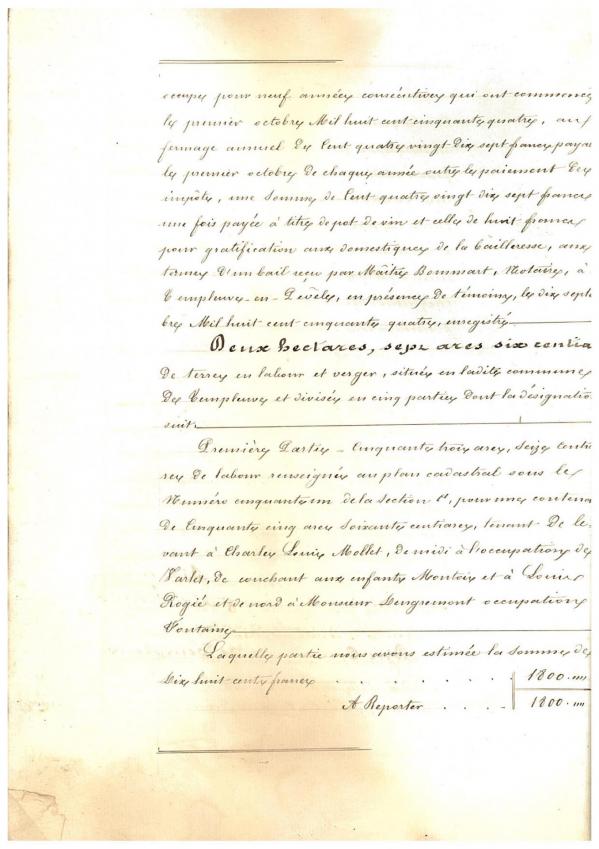 occupe pour neuf années consécutives qui ont commencé
le premier octobre Mil huit cent cinquante quatre, au
fermage annuel de Cent quatre vingt dix sept francs payab
le premier octobre de chaque année outre le paiement des
impôts, une somme de Cent quatre vingt dix sept francs
une fois payée à titre de pot de vin et celle de huit francs
pour gratification aux domestiques de la bailleresse, aux
termes d'un bail reçu par Maître Bommart, Notaire, à
Templeuve-en-Pévèle, en présence de témoins, le dix sept
bre Mil huit cent cinquante quatre, enregistré
Deux hectares, sept ares six centia
de terre en labour et verger, située en ladite commune
de Templeuve et divisée en cinq parties dont la désignatio
suit:
Première Partie - Cinquante trois ares, seize centia
res de labour renseignée au plan cadastral sous le
Numéro cinquante un de la Section , pour une contena
de Cinquante cinq ares soixante centiares, tenant de le-
vant à Charles Louis Mollet, de midi à l'occupation de
Varlet, de couchant aux enfants Montois et à Louis
Rogié et de nord à Monsieur Dengremont occupation
Fontaine
Laquelle partie nous avons estimée la somme de
Dix huit cents francs . . . . . . . 1800. "
A Reporter . . . . 1800. "